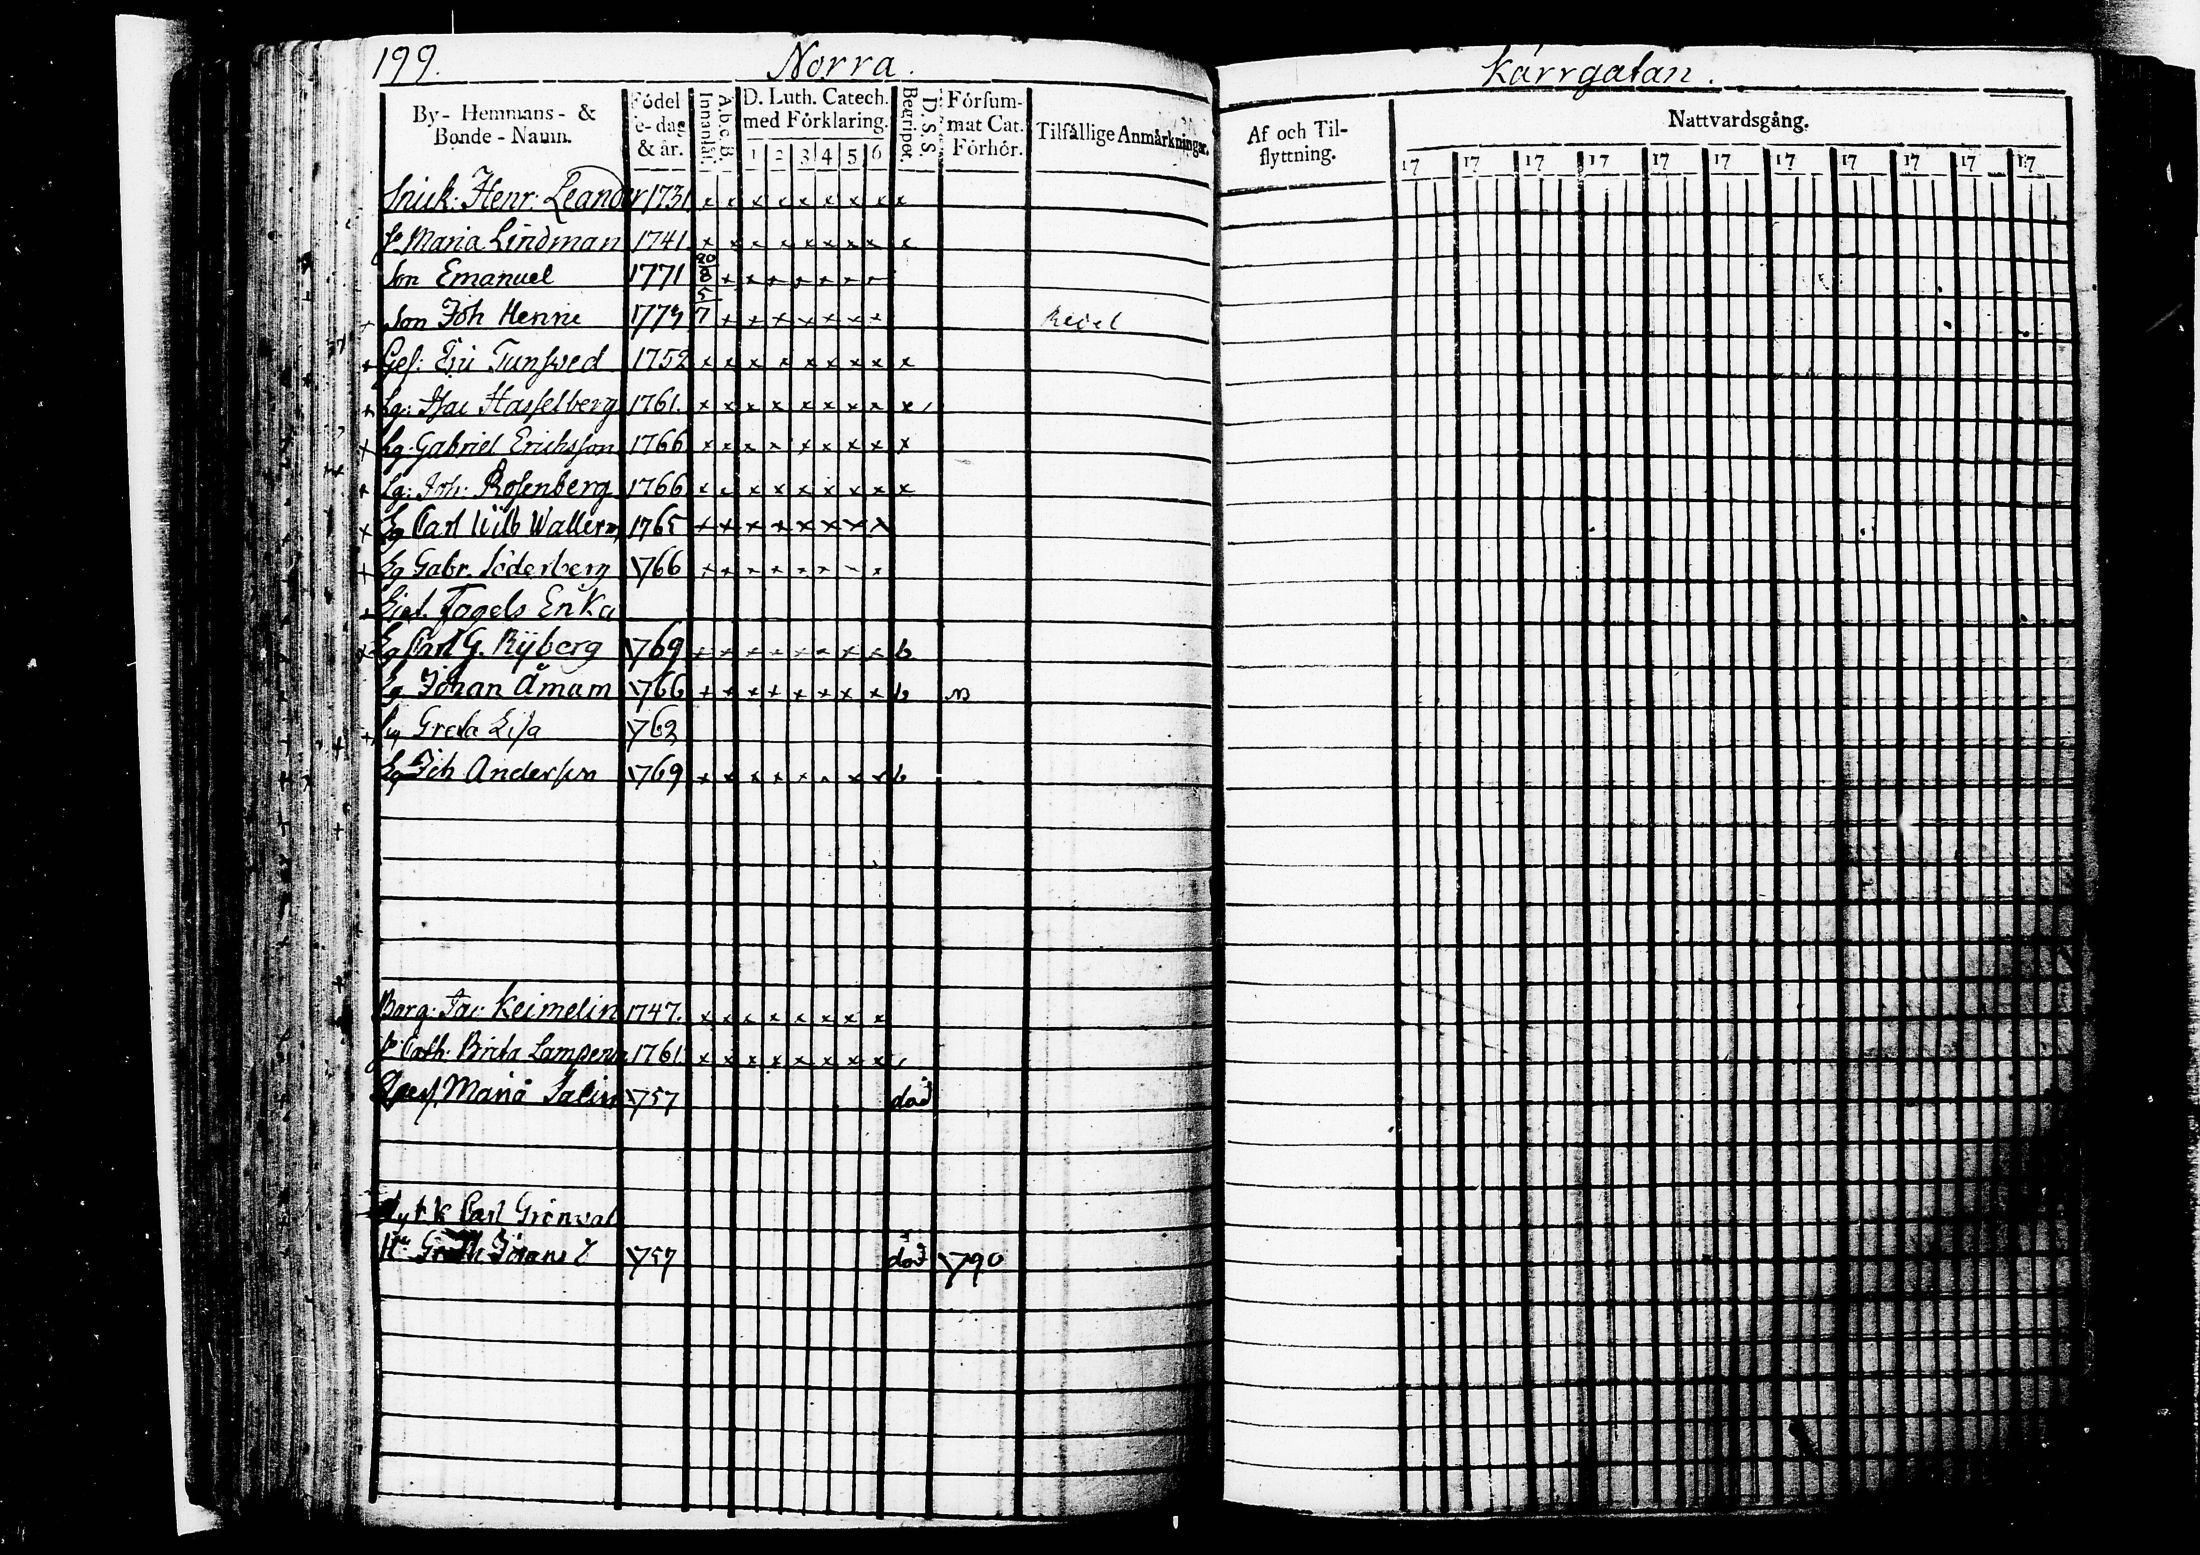 199. Norra. Kärrgatan.
By- Hemmans- & Bonde-Namn. Födelse-dag & år. Innanläs. A.b.c.B. D. Luth. Catech. med Förklaring. 1 2 3 4 5 6 Begripet. D.S.S. Försummat Cat. Förhör. Tilfällige Anmärkningar. Af och Tilflyttning. Nattvardsgång.
17 17 17 17 17 17 17 17 17 17 17
Snick: Henr: Leander 1731 x x x x x x x x x
Maria Lindman 1741 x x x x x x x x x
Son Emanuel 1771 20/8 x x x x x x x
Son Joh Henric 1773 5/7 x x x x x x x
Ges: Eric Tunsved 1752 x x x x x x x x x
Lg: Isac Hasselberg 1761. x x x x x x x x x
Lg: Gabriel Erichsson 1766 x x x x x x x x x
Lg: Joh: Rosenberg 1766 x x x x x x x x x
Lg Carl Wilh Wallerm 1765 x x x x x x x x
Lg Gabr. Söderberg 1766 x x x x x x x x
Fogels Enka
Lg Carl G. Ryberg 1769 x x x x x x x x b
Lg Johan Åmam 1766 x x x x x x x x b
Greta Lisa 1762
Lg Joh Andersson 1769 x x x x x x x x b
Borg: Jac: Keimelin 1747. x x x x x x x x
Cath: Brita 1761 x x x x x x x x
Maria 1757 död
Carl Grönval
1757 död 1790